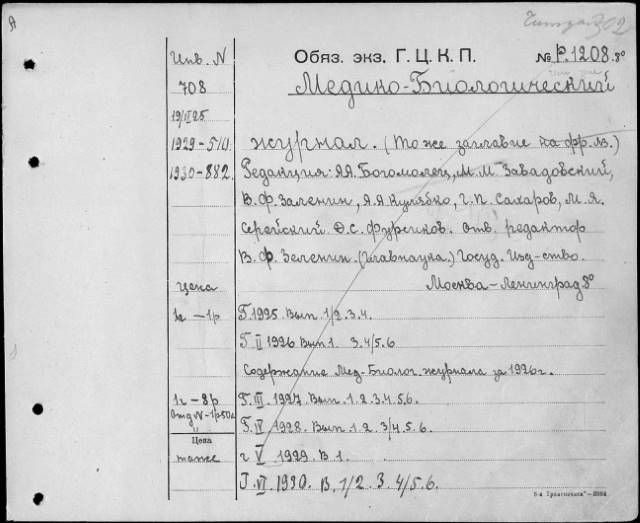 302
Инв. N
Обяз. экз. Г. Ц. К. П.
№ Р.1208. 8°
708
Медико-Биологический
19/II 25
1929-511.
журнал. (Тоже заглавие на фр. яз.)
1930-882.
Редакция: А.А. Богомолец, М. М. Завадовский,
В. Ф. Зеленин, А.А Кулябко, Г. П. Сахаров, М. Я.
Серейский Ф. С. Фурсиков. Отв. редактор
В. Ф. Зеленин. (Главнаука.) Госуд. Изд-ство.
цена
Москва-Ленинград 8°
1в -1р
Г. 1925. Вып. 1/2. 3. 4.
Г II 1926 Вып 1. 3. 4/5. 6
Содержание Мед-Биолог. журнала за 1926 г.
1г - 8р
Г. III. 1927. Вып. 1. 2. 3. 4. 5. 6.
Отд N-1р50к
Г. IV. 1928. Вып 1. 2. 3/4. 5. 6.
Цена
тоже
г V 1929. В 1.
Г. VI. 1930. В. 1/2. 3. 4/5. 6.